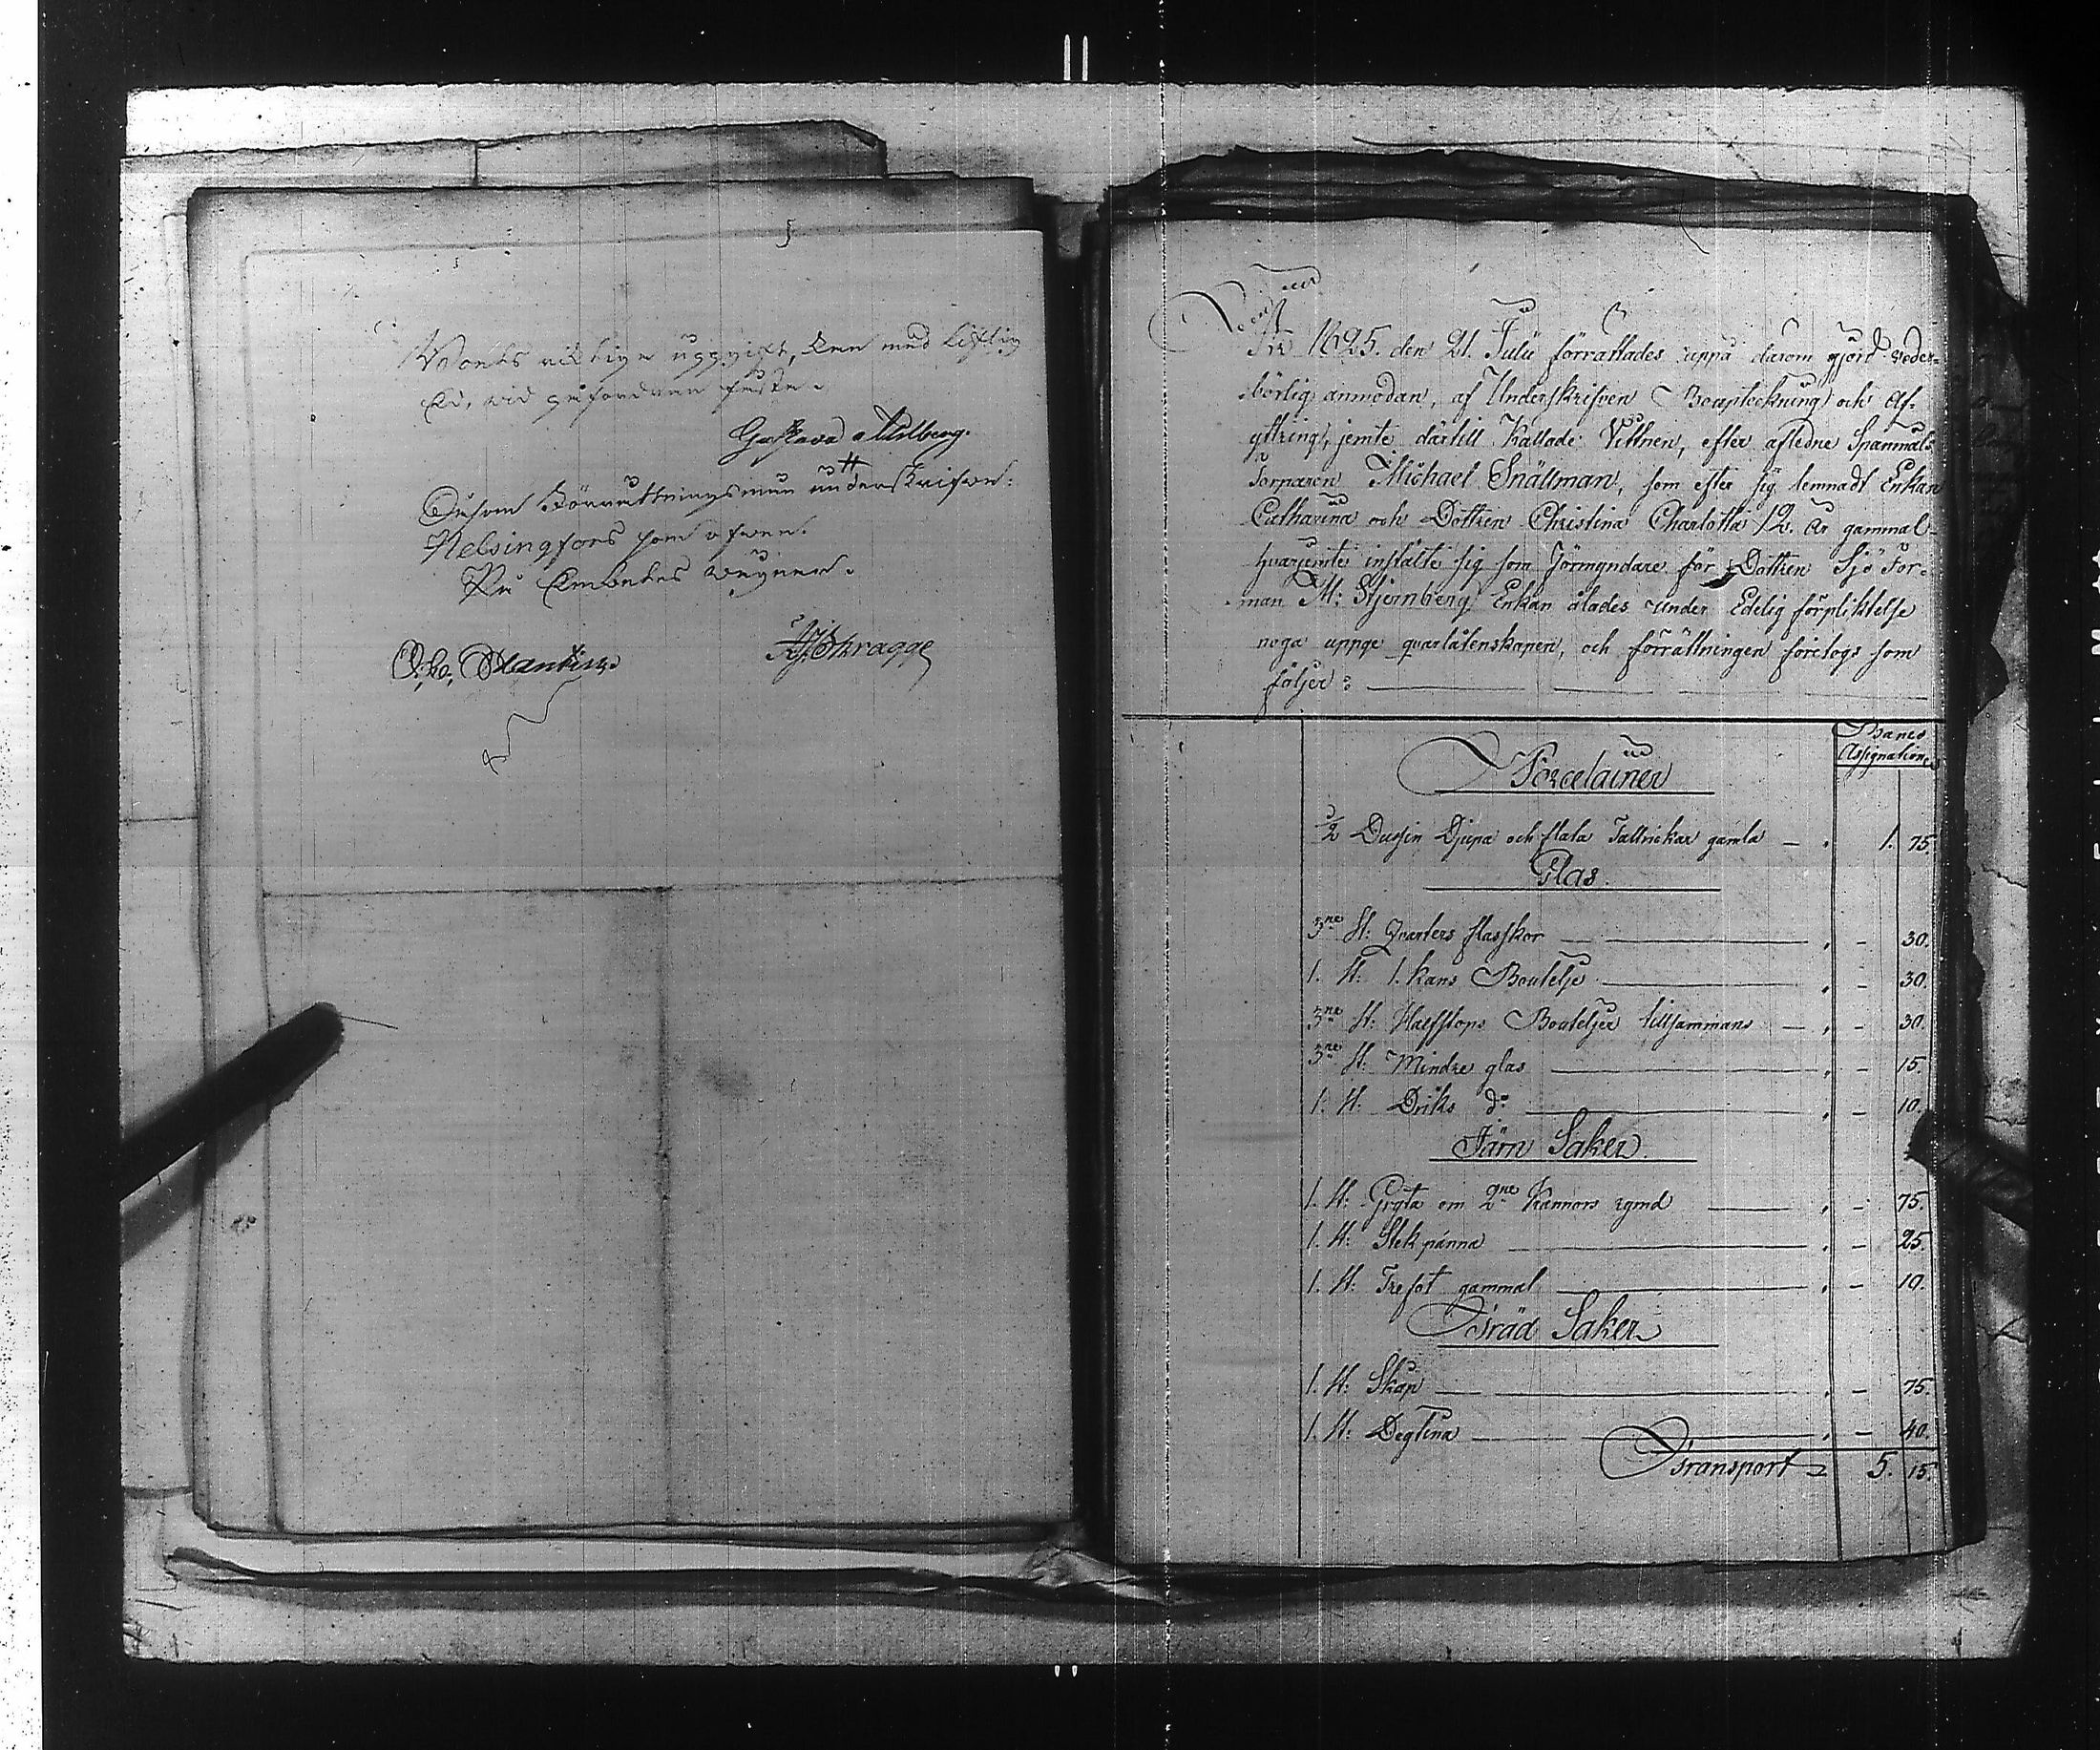 Wara riktigen uppgifit, kan med liflig
Ed, vid påfordran fästa.
Gustava Aulberg.
Såsom Förrättningsmän underskrifva:
Helsingfors som ofvan.
På Embetes vägnar.
Skragge
År 1825. den 21. Julii förrättades uppå därom gjord veder-
börlig anmodan, af Underskrifven Boupteckning och Af-
yttring, jemte därtill Kallade Vittnen, efter afledne Spanmåls
Torparen Michael Snällman, som efter sig lemnadt Enkan
Catharina och Dottren Christina Charlotta 12. år gammal
hvarjemte inställte sig som Förmyndare för Dottren Sjö Tor-
man M: Stjernberg Enkan ålades under Edelig förpliktelse
noga uppge qvarlåtenskapen, och förrättningen företogs som
följer:
Banco
Assignationer
Porcelainer
1/2 Dussin Djupa och flata Tallrickar gamla — 1. 75.
Glas.
3ne St: Qvarters flasskor — 30.
1. St: 1. kans Boutelje — 30.
3ne St: Halfstops Bouteljer tillsammans — 30.
3ne St: Mindre glas — 15.
1. St: Driks do — 10.
Järn Saker.
1. St: Gryta om 2ne Kannors rymd — 75.
1. St: Stek panna — 25.
1. St: Trefot gammal — 10.
Träd Saker
1. St: Skåp — 75.
1. St: Degtina — 40.
Transport 5. 15.